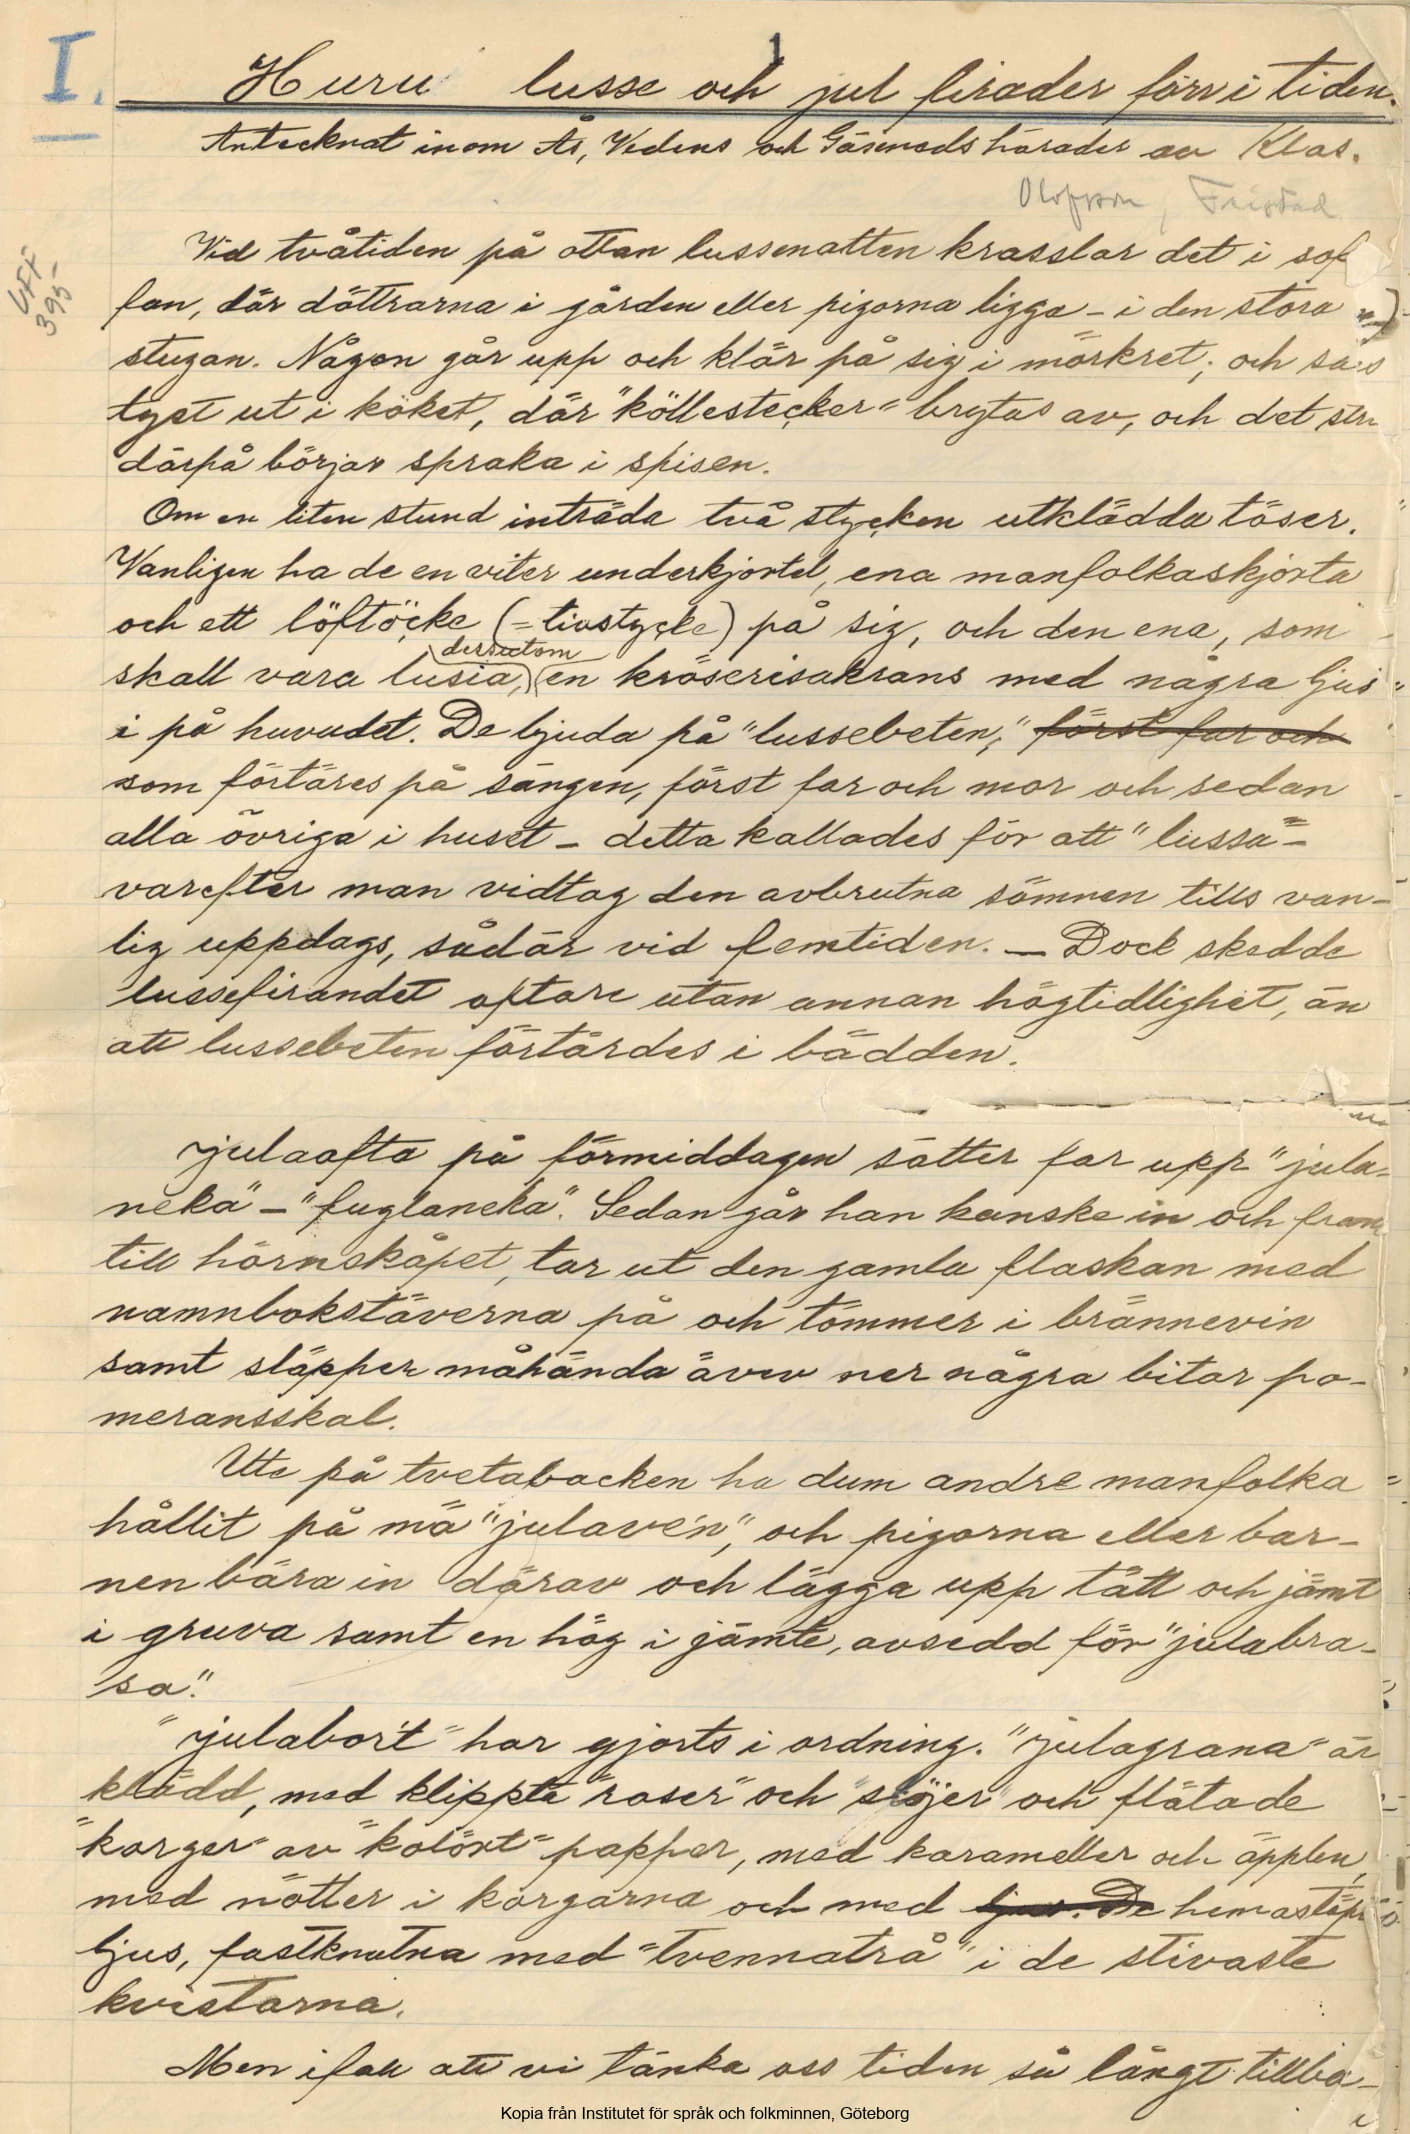 1
I.
Huru lusse och jul firades förr i tiden.
Antecknat inom Ås, Vedens och Gäseneds härader av Klas.
Olofsson, Fristad
VFF
395
Vid tvåtiden på ottan lussenatten krasslar det i sof
fan, där döttrarna i gården eller pigorna ligga - i den stora
stugan. Någon går upp och klär på sig i mörkret, och
tyst ut i köket, där "köllestecker" brytas av, och det
därpå börjar spraka i spisen.
Om en liten stund inträda två stycken utklädda töser.
Vanligen ha de en viter underkjortel, ena manfolkaskjorta
och ett löftöcke (= livstycke) på sig, och den ena, som
dessutom
skall vara lusia, en kröserisakrans med några ljus
i på huvudet. De bjuda på "lussebeten," först far och
som förtäres på sängen, först far och mor och sedan
alla övriga i huset - detta kallades för att "lussa" -
varefter man vidtog den avbrutna sömnen tills van-
lig uppdags, sådär vid femtiden. - Dock skedde
lussefirandet oftare utan annan högtidlighet, än
att lussebeten förtärdes i bädden.
Julaafta på förmiddagen sätter far upp "jula-
neka" - "fuglaneka". Sedan går han kanske in och fram
till hörnskåpet, tar ut den gamla flaskan med
namnbokstäverna på och tömmer i brännevin
samt släpper måhända även ner några bitar po-
meransskal.
Ute på tvetabacken ha dum andre manfolka
hållit på mä "julave'n", och pigorna eller bar-
nen bära in därav och lägga upp tätt och jämt
i gruva samt en hög i jämte, avsedd för "julabra-
sa".
"Julabor't" har gjorts i ordning. "Julagrana" är
klädd, med klippta "roser" och "slöjer" och flätade
"korger" av "kolört" papper, med karameller och äpplen,
med nötter i korgarna och med ljus. De hemastöpt
ljus, fastknutna med "tvennatrå" i de stivaste
kvistarna.
Men ifall att vi tänka oss tiden så långt tillba-
Kopia från Institutet för språk och folkminnen, Göteborg